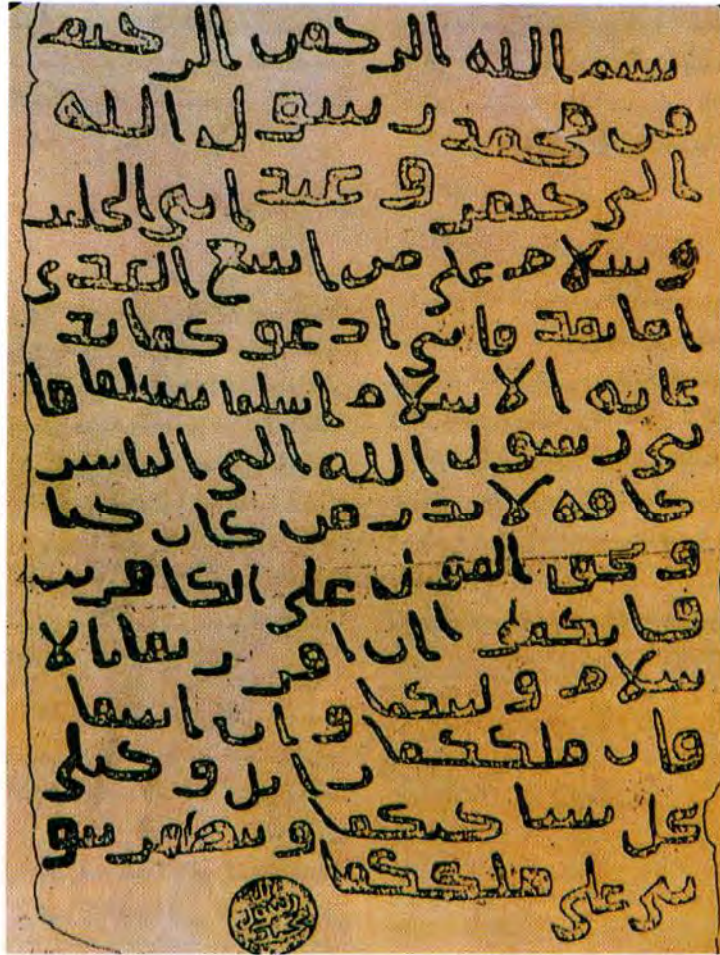 بسم الله الرحمن الرحيم
من محمد رسول الله
الى جيفر و عبد ابنى الجلند
و سلام على من اتبع الهدى
اما بعد فانى ادعو كما بد
عايه الاسلام اسلما تسلما فا
نى رسول الله الى الناس
كافه لانذر من كان حيا
و يحق القول على الكافرين
فانكما ان اقررتما بالا
سلام وليتكما و ان ابيتما
فان ملككما زايل و خيلى
تحل بساحتكما و تظهر نبو
تى على ملككما
الله
رسول
محمد